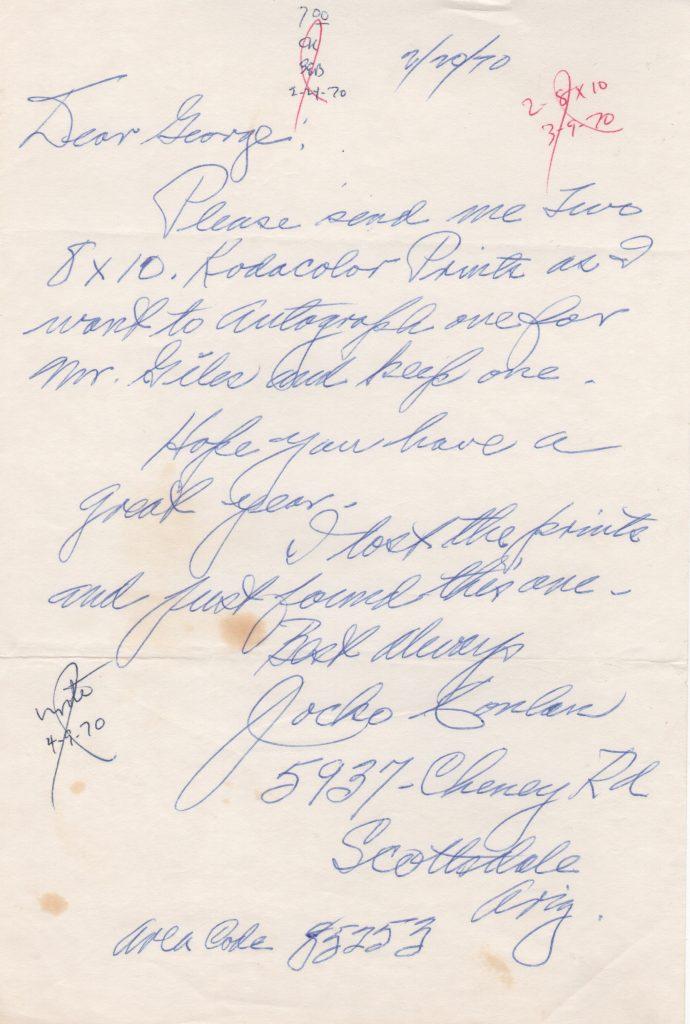 7 00
OK
2-24-70
2/20/70
2-8x10
3-9-70
Dear George:
Please send me Two
8 x 10. Kodacolor Prints as I
want to Autograph one for
Mr. Giles and keep one.
Hope you have a
great year.
I lost the prints
and just found this one.
Best Always
Jocko Conlan
wrote
4-9-70
5937-Cheney Rd
Scottsdale
Ariz.
Area Code 85253